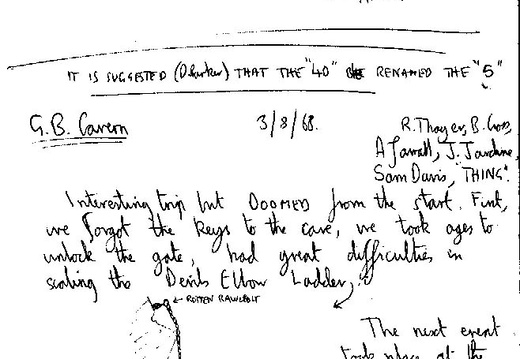 IT IS SUGGESTED (D.        ) THAT THE "40" BE RENAMED THE "5"
G.B. Cavern 3/8/68. R. Thayer, B. Cross,
A Farrall, J. Jardine,
Sam Davis, "THING".
Interesting trip but DOOMED from the start. First,
we forgot the keys to the cave, we took ages to
unlock the gate, had great difficulties in
scaling the Devils Elbow Ladder,
← ROTTEN RAWLBOLT
The next event
took place at the